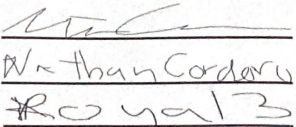 Nathan Cordero
Royal 3